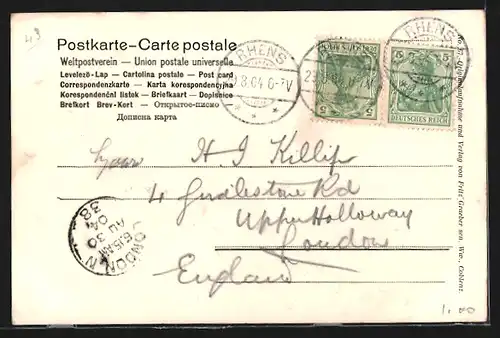 43
Postkarte – Carte postale
Weltpostverein – Union postale universelle
Levelező-Lap – Cartolina postale – Post card
Correspondenzkarte – Karta korespondencyjna
Korespondenční lístek – Briefkaart – Dopisnice
Brefkort Brev-Kort – Открытое-письмо
Дописна карта
RHENS
8.04 6-7V
5 5
DEUTSCHES REICH
RHENS
5 5
H J Killip
4 Giesbach Rd
Upper Holloway
London
England
LONDON N
6.15 AM
AU 30
04
38
und Verlag von Fritz Gruber sen. Ww., Coblenz.
1.00